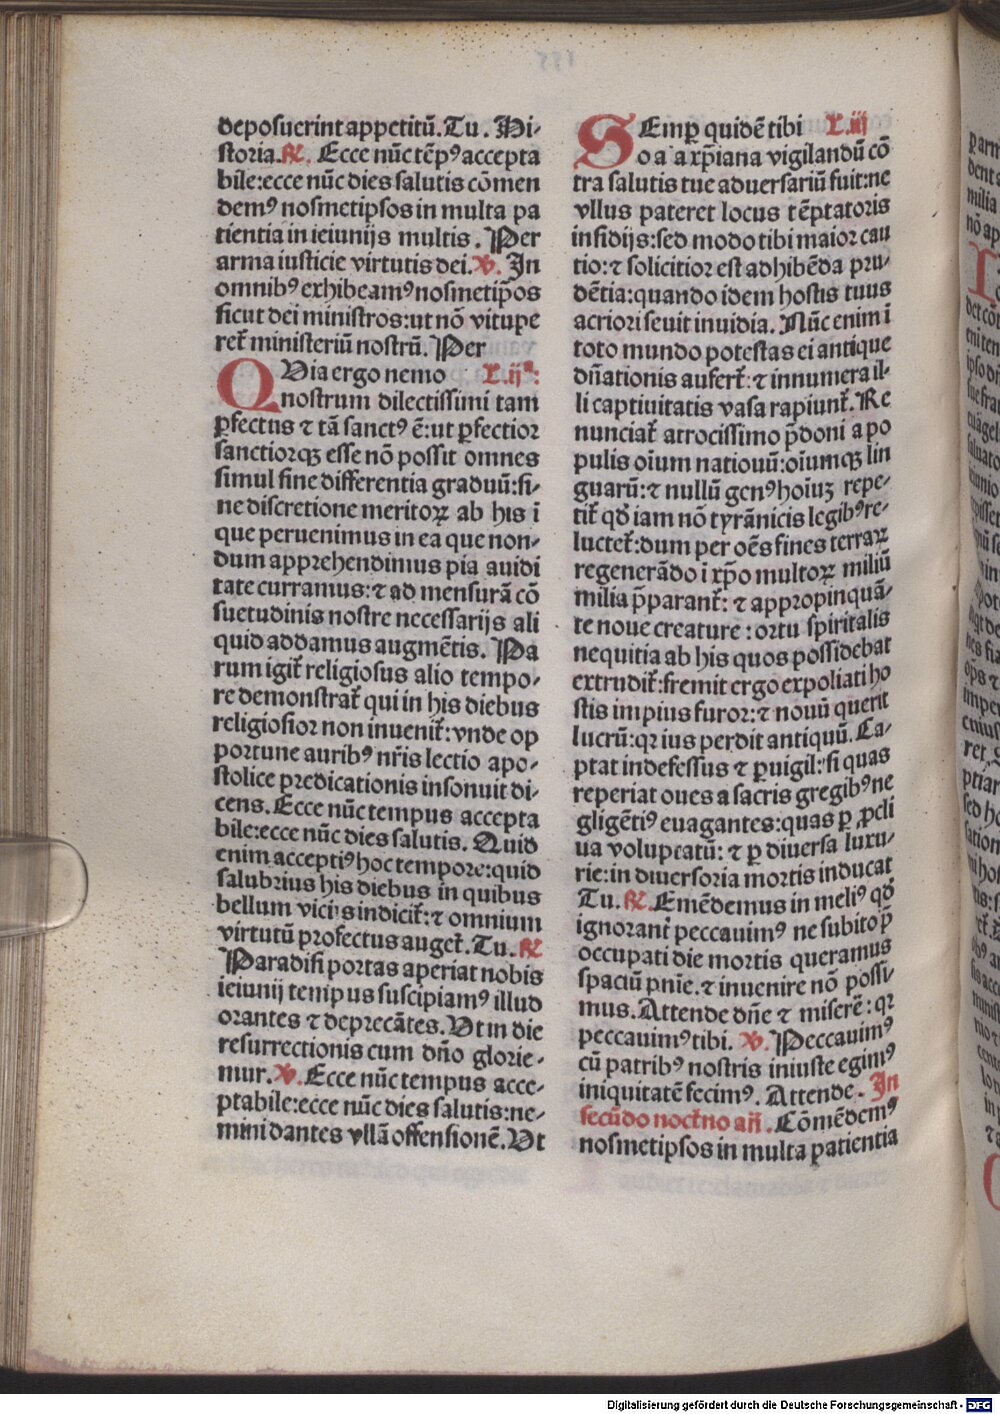 deposuerint appetitū. Tu. Hi-
storia. R̷. Ecce nūc tēpꝰ accepta
bile: ecce nūc dies salutis cōmen
demꝰ nosmetipsos in multa pa
tientia in ieiunijs multis. Per
arma iusticie virtutis dei. V̷. In
omnibꝰ exhibeamꝰ nosmetip̄os
sicut dei ministros: ut nō vitupe
ret᷑ ministeriū nostrū. Per
QVia ergo nemo L.ijᵃ:
nostrum dilectissimi tam
ꝑfectus ⁊ tā sanctꝰ ē: ut ꝑfectior
sanctiorqꝫ esse nō possit omnes
simul sine differentia graduū: si-
ne discretione meritoꝝ ab his ī
que peruenimus in ea que non-
dum apprehendimus pia auidi
tate curramus: ⁊ ad mensurā cō
suetudinis nostre necessarijs ali
quid addamus augmētis. Pa
rum igit᷑ religiosus alio tempo-
re demonstrat᷑ qui in his diebus
religiosior non inuenit᷑: vnde op
portune auribꝰ nr̄is lectio apo-
stolice predicationis insonuit di-
cens. Ecce nūc tempus accepta
bile: ecce nūc dies salutis. Quid
enim acceptiꝰ hoc tempore: quid
salubrius his diebus in quibus
bellum vicijs indicit᷑: ⁊ omnium
virtutū profectus auget᷑. Tu. R̷
Paradisi portas aperiat nobis
ieiunij tempus suscipiamꝰ illud
orantes ⁊ deprecātes. Vt in die
resurrectionis cum dn̄o glorie-
mur. V̷. Ecce nūc tempus acce-
ptabile: ecce nūc dies salutis: ne-
mini dantes vllā offensionē. Vt
SEmꝑ quidē tibi L.iij
o aīa xp̄iana vigilandū cō
tra salutis tue aduersariū fuit: ne
vllus pateret locus tēptatoris
insidijs: sed modo tibi maior cau
tio: ⁊ solicitior est adhibēda pru-
dētia: quando idem hostis tuus
acriori seuit inuidia. Nūc enim ī
toto mundo potestas ei antique
dn̄ationis aufert᷑: ⁊ innumera il-
li captiuitatis vasa rapiunt᷑. Re
nunciat᷑ atrocissimo p̄doni a po
pulis oīum natiouū: oīumqꝫ lin
guarū: ⁊ nullū genꝰ hoīuꝫ repe-
rit᷑ qd̄ iam nō tyrānicis legibꝰ re-
luctet᷑: dum per oēs fines terraꝝ
regenerādo ī xp̄o multoꝝ miliū
milia p̄parant᷑: ⁊ appropinquā-
te noue creature: ortu spiritalis
nequitia ab his quos possidebat
extrudit᷑: fremit ergo expoliati ho
stis impius furor: ⁊ nouū querit
lucrū: qꝛ ius perdit antiquū. Ca-
ptat indefessus ⁊ ꝑuigil: si quas
reperiat oues a sacris gregibꝰ ne
gligētiꝰ euagantes: quas ꝑ ꝓcli
ua voluptatū: ⁊ ꝑ diuersa luxu-
rie: in diuersoria mortis inducat
Tu. R̷. Emēdemus in meliꝰ qd̄
ignorant᷑ peccauimꝰ ne subito p̄
occupati die mortis queramus
spaciū pnīe. ⁊ inuenire nō possi-
mus. Attende dn̄e ⁊ miserē: qꝛ
peccauimꝰ tibi. V̷. Peccauimꝰ
cū patribꝰ nostris iniuste egimꝰ
iniquitatē fecimꝰ. Attende. In
secūdo noct᷑no añ. Cōmēdemꝰ
nosmetipsos in multa patientia
Digitalisierung gefördert durch die Deutsche Forschungsgemeinschaft - DFG